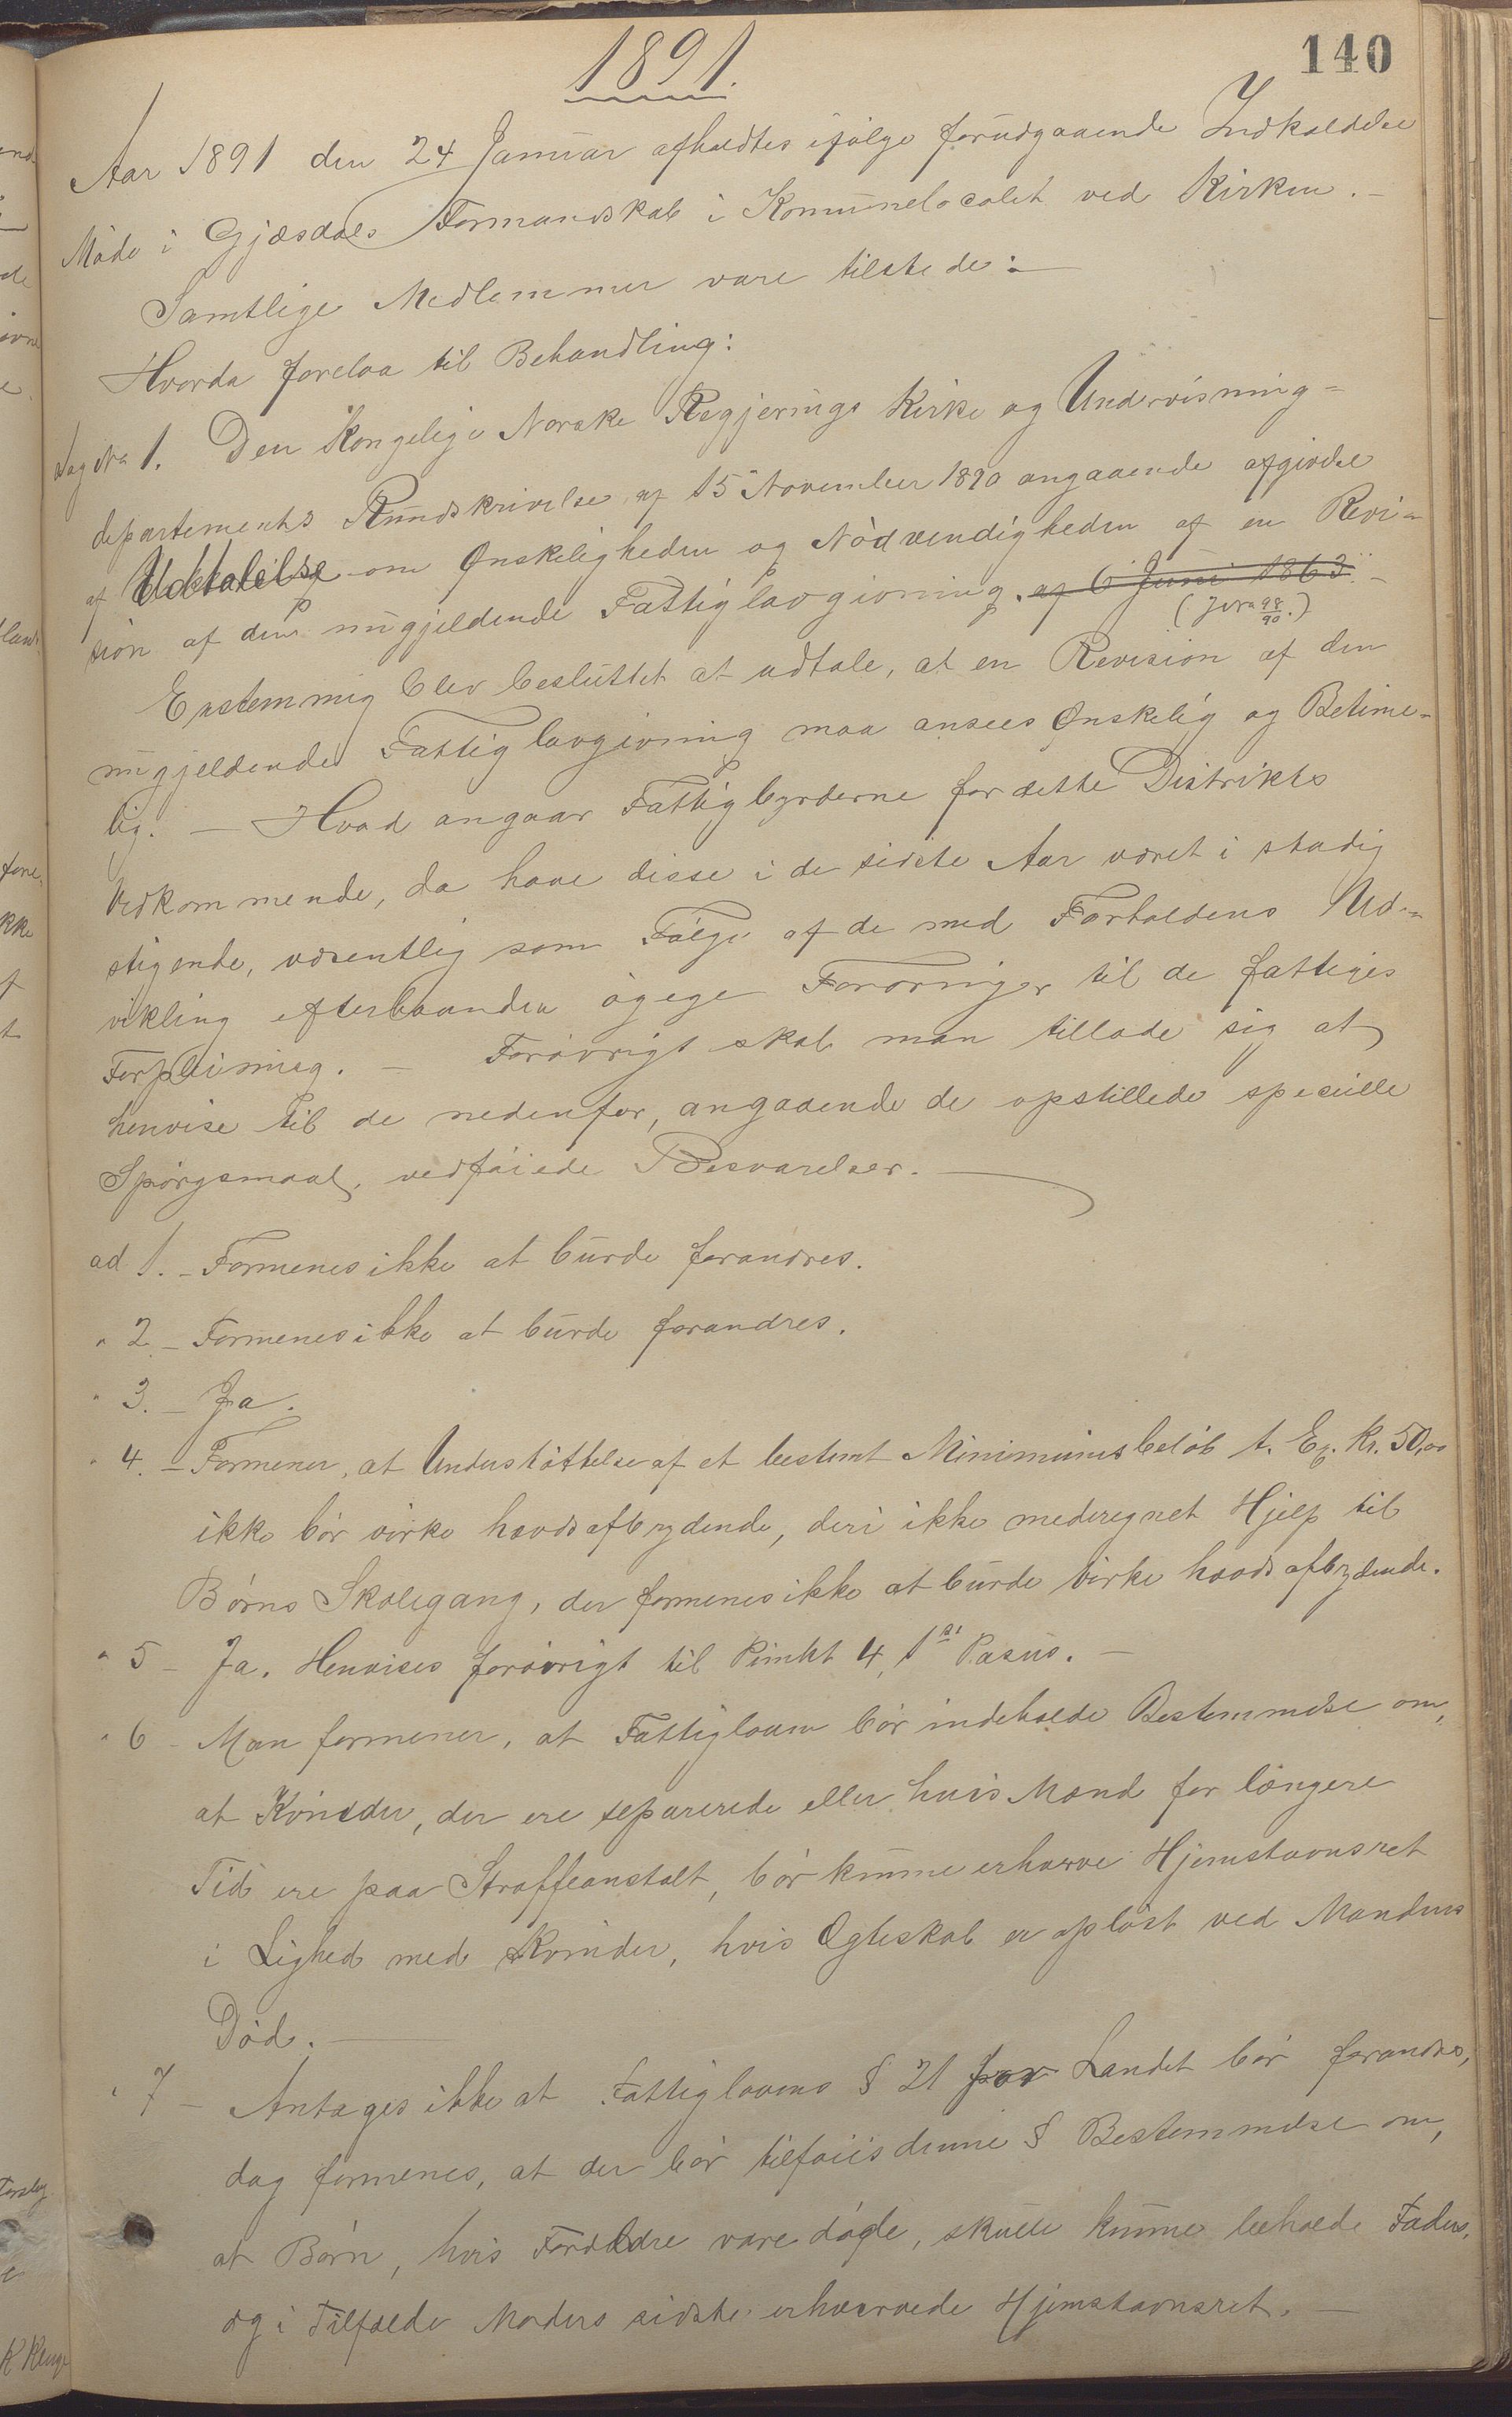 140
1891.
Aar 1891 den 24 Januar afholdtes ifölge forudgaaende Indkaldelse
Möde i Gjæsdals Formandskab i Komunelocalet ved Kirken. –
Samtlige Medlemmer vare tilstede: –
Hvorda forelaa til Behandling:
Sag No 1. Den Kongelige Norske Regjerings Kirke og Undervisning-
departements Rundskrivelse af 15 November 1890 angaaende afgivelse
af Udtalelse om Ønskeligheden og Nödvendigheden af en Revi-
sion af den nugjeldende Fattiglovgivning. af 6 Juni 1863 –
(Jvr 98/90.)
Enstemmig blev besluttet at udtale, at en Revision af den
nugjeldende Fattiglovgivning maa ansees Ønskelig og Betime-
lig. – Hvad angaar Fattigbyrderne for dette Distrikts
Vedkommende, da have disse i de sidste Aar været i stadig
stigende, væsentlig som Fölge af de med Forholdens Ud-
vikling efterhaanden ögege Fordringer til de fattiges
Forpleining. – Forövrigt skal man tillade sig at
henvise til de nedenfor, angaaende de opstillede specielle
Spörgsmaal, vedföiede Besvarelser. –
ad 1. – Formenes ikke at burde forandres.
" 2 – Formenes ikke at burde forandres.
" 3. – Ja.
" 4. – Formener, at Understöttelse af et bestemt Minimumsbelöb t. Ex. Kr. 50,00
ikke bör virke hævdsafbrydende, deri ikke medregnet Hjelp til
Börns Skolegang, der formenes ikke at burde virke hævdsafbrydende.
" 5 – Ja. Henvises forövrigt til Punkt 4, 1ste Pasus. –
" 6 – Man formener, at Fattigloven bör indeholde Bestemmelse om,
at Kvinder, der ere separerede eller hvis Mænd for længere
Tid ere paa Straffeanstalt, bör kunne erhverve Hjemstavnsret
i Lighed med Kvinder, hvis Ægteskab er oplöst ved Mandens
Död. –
" 7 – Antages ikke at Fattiglovens § 21 for Landet bör forandres,
dog formenes, at der bör tilföies denne § Bestemmelse om,
at Börn, hvis Forældre vare dögde, skulle kunne beholde Faders,
og i Tilfælde Moders sidste erhvervede Hjemstavnsret. –